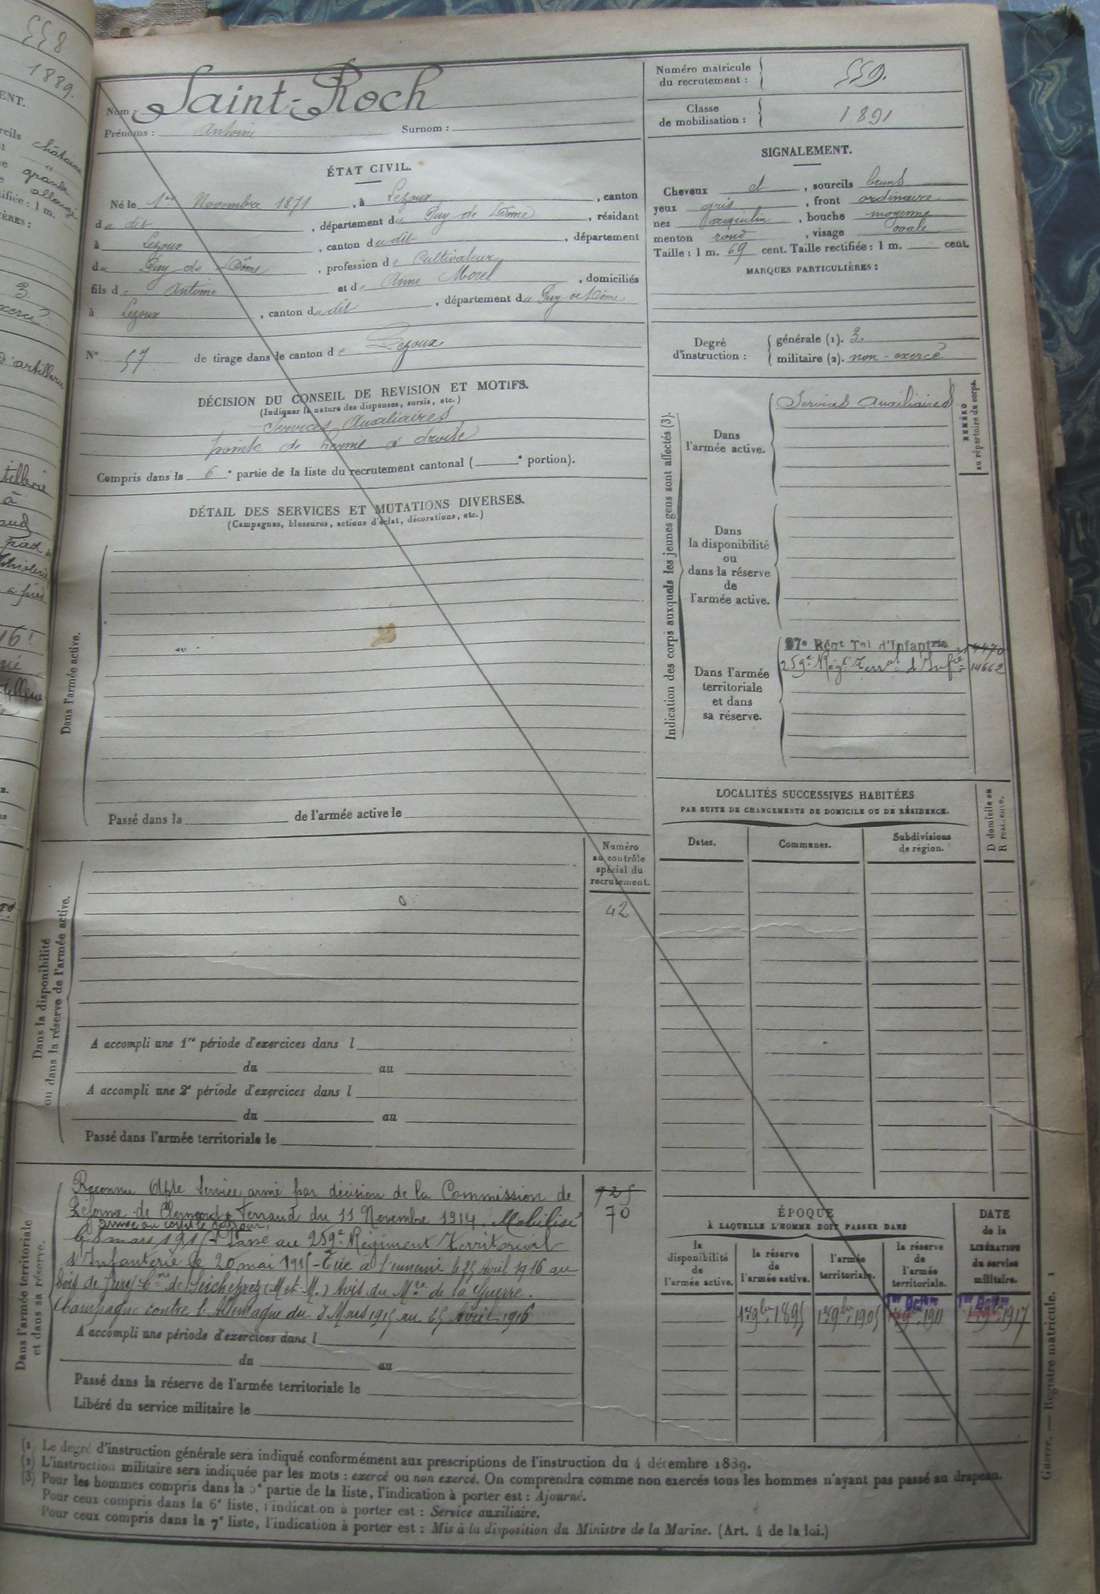 558
1889.
Nom : Saint-Roch
Prénoms : Antoine Surnom :
Numéro matricule du recrutement : 559.
Classe de mobilisation : 1891
ÉTAT CIVIL.
Né le 1er Novembre 1871, à Lezoux, canton
du dit, département du Puy de Dôme, résidant
à Lezoux, canton du dit, département
du Puy de Dôme, profession de Cultivateur
fils d' Antoine et d' Anne Morel, domiciliés
à Lezoux, canton du dit, département du Puy de Dôme
N° 57 de tirage dans le canton de Lezoux
SIGNALEMENT.
Cheveux et, sourcils bruns
yeux gris, front ordinaire
nez aquilin, bouche moyenne
menton rond, visage ovale
Taille : 1 m. 69 cent. Taille rectifiée : 1 m. cent.
MARQUES PARTICULIÈRES :
Degré d'instruction :
générale (1). 3.
militaire (2). non-exercé
DÉCISION DU CONSEIL DE REVISION ET MOTIFS.
(Indiquer la nature des dispenses, sursis, etc.)
Services Auxiliaires
pointe de hernie à droite
Compris dans la 6e partie de la liste du recrutement cantonal ( e portion).
DÉTAIL DES SERVICES ET MUTATIONS DIVERSES.
(Campagnes, blessures, actions d'éclat, décorations, etc.)
Dans l'armée active.
Passé dans la de l'armée active le
Indication des corps auxquels les jeunes gens sont affectés (3).
Dans l'armée active.
Services Auxiliaires
NUMÉRO au répertoire du corps.
Dans la disponibilité ou dans la réserve de l'armée active.
Dans l'armée territoriale et dans sa réserve.
97e Régt Tal d'Infanterie 4470
259e Régt Terral d'Infie 14662
LOCALITÉS SUCCESSIVES HABITÉES
PAR SUITE DE CHANGEMENTS DE DOMICILE OU DE RÉSIDENCE.
Dates.
Communes.
Subdivisions de région.
D domicile ou
Numéro au contrôle spécial du recrutement.
42
Dans la disponibilité ou dans la réserve de l'armée active.
A accompli une 1re période d'exercices dans l
du au
A accompli une 2e période d'exercices dans l
du au
Passé dans l'armée territoriale le
Dans l'armée territoriale et dans sa réserve.
Reconnu Apte Service armé par décision de la Commission de
Réforme de Clermont-Ferrand du 11 Novembre 1914. Mobilisé
Arrivé au corps le dit jour.
le 8 mars 1915. Passé au 259e Régiment territorial
d'Infanterie le 20 mai 1915 - Tué à l'ennemi le 25 Avril 1916 au
bois de Jury Cne de Seicheprey (M-et-M.) Avis du Mre de la Guerre.
Campagne contre l'Allemagne du 8 Mars 1915 au 25 Avril 1916
725
70
A accompli une période d'exercices dans l
du au
Passé dans la réserve de l'armée territoriale le
Libéré du service militaire le
ÉPOQUE
À LAQUELLE L'HOMME DOIT PASSER DANS
la disponibilité de l'armée active.
la réserve de l'armée active.
l'armée territoriale.
la réserve de l'armée territoriale.
DATE de la LIBÉRATION du service militaire.
1 9bre 1895
1 9bre 1905
1er Octbre 1911
1er Octbre 1917
(1) Le degré d'instruction générale sera indiqué conformément aux prescriptions de l'instruction du 4 décembre 1889.
(2) L'instruction militaire sera indiquée par les mots : exercé ou non exercé. On comprendra comme non exercés tous les hommes n'ayant pas passé au drapeau.
(3) Pour les hommes compris dans la 5e partie de la liste, l'indication à porter est : Ajourné.
Pour ceux compris dans la 6e liste, l'indication à porter est : Service auxiliaire.
Pour ceux compris dans la 7e liste, l'indication à porter est : Mis à la disposition du Ministre de la Marine. (Art. 4 de la loi.)
Guerre. — Registre matricule. 1